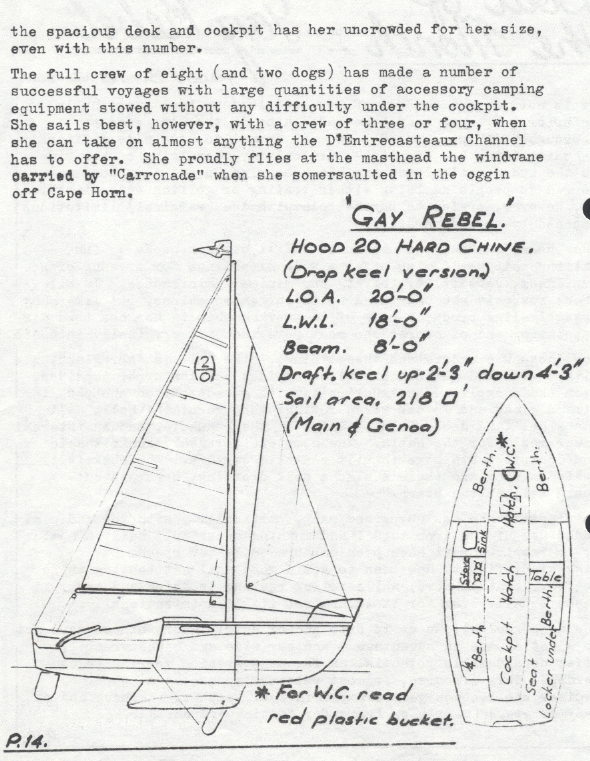 the spacious deck and cockpit has her uncrowded for her size,
even with this number.
The full crew of eight (and two dogs) has made a number of
successful voyages with large quantities of accessory camping
equipment stowed without any difficulty under the cockpit.
She sails best, however, with a crew of three or four, when
she can take on almost anything the D'Entrecasteaux Channel
has to offer.  She proudly flies at the masthead the windvane
carried by "Carronade" when she somersaulted in the oggin
off Cape Horn.
"GAY REBEL."
HOOD 20 HARD CHINE.
(Drop keel version)
L.O.A. 20'-0"
L.W.L. 18'-0"
Beam. 8'-0"
Draft. keel up-2'-3" down 4'-3"
Sail area. 218 □'
(Main & Genoa)
2
0
Berth.
*
W.C.
Berth.
Hatch.
Stove
Sink
Hatch
Table
*Berth
Cockpit
Berth.
Seat
Locker under
* For W.C. read
red plastic bucket.
P.14.